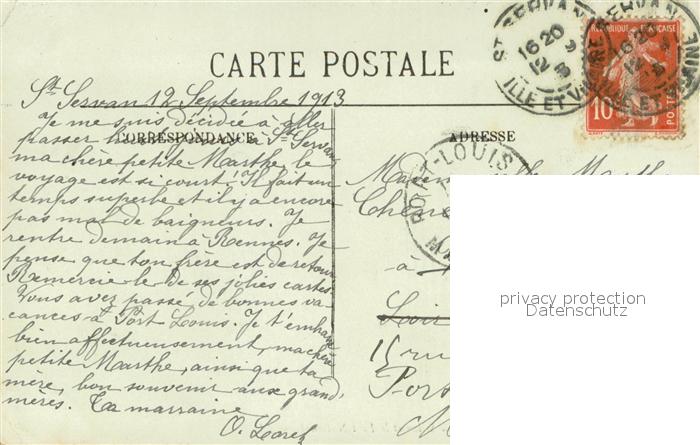 CARTE POSTALE
CORRESPONDANCE
ADRESSE
RÉPUBLIQUE FRANÇAISE
10
POSTES
ST SERVAN
16 20
12 9
ILLE ET VILAINE
PORT-LOUIS
St Servan 12 Septembre 1913
Je me suis décidée à aller
passer huit jours à St Servan
ma chère petite Marthe, le
voyage est si court! Il fait un
temps superbe et il y a encore
pas mal de baigneurs. Je
rentre demain à Rennes. Je
pense que ton frère est de retour
Remercie-le de ses jolies cartes.
Vous avez passé de bonnes va
cances à Port Louis. Je t'embrasse
bien affectueusement, ma chère
petite Marthe, ainsi que ta
mère, bon souvenir aux grand'
mères. Ta marraine
O. Loret
à
Loir
15 ru
Port
privacy protection
Datenschutz